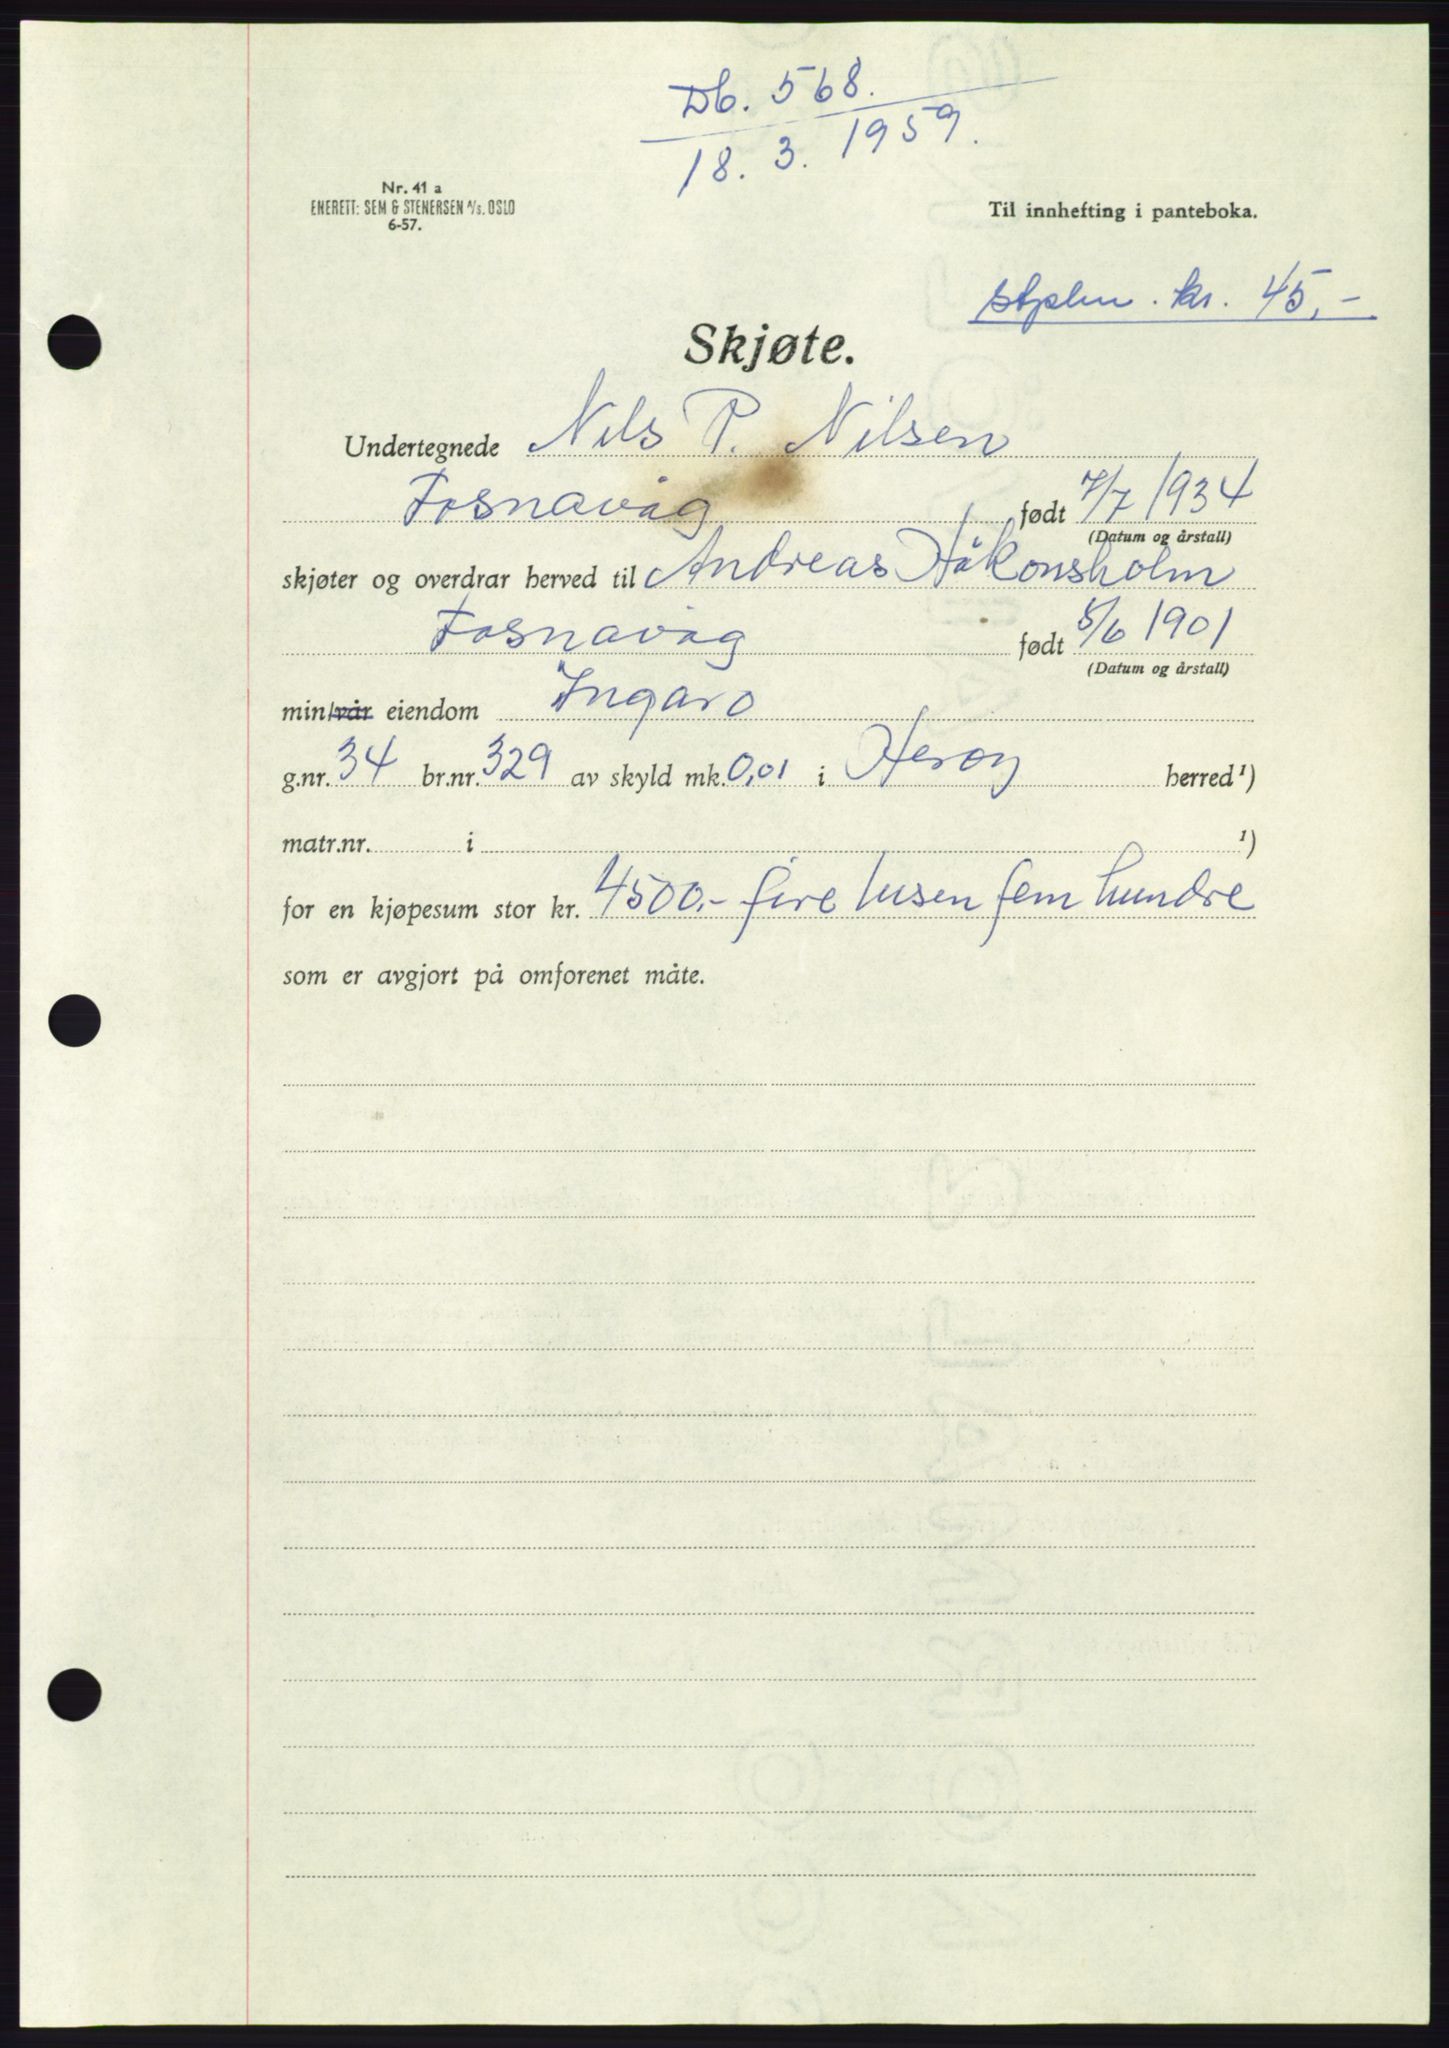 Db. 568.
18. 3. 1959.
Nr. 41 a
ENERETT: SEM & STENERSEN A/S. OSLO
6-57.
Til innhefting i panteboka.
stplm. kr. 45,-
Skjøte.
Undertegnede Nils P. Nilsen
Fosnavåg født 7/7 1934
(Datum og årstall)
skjøter og overdrar herved til Andreas Håkonsholm
Fosnavåg født 5/6 1901
(Datum og årstall)
min/vår eiendom Ingaro
g.nr. 34 br.nr. 329 av skyld mk. 0,01 i Herøy herred ¹)
matr.nr. i ¹)
for en kjøpesum stor kr. 4500.- fire tusen fem hundre
som er avgjort på omforenet måte.